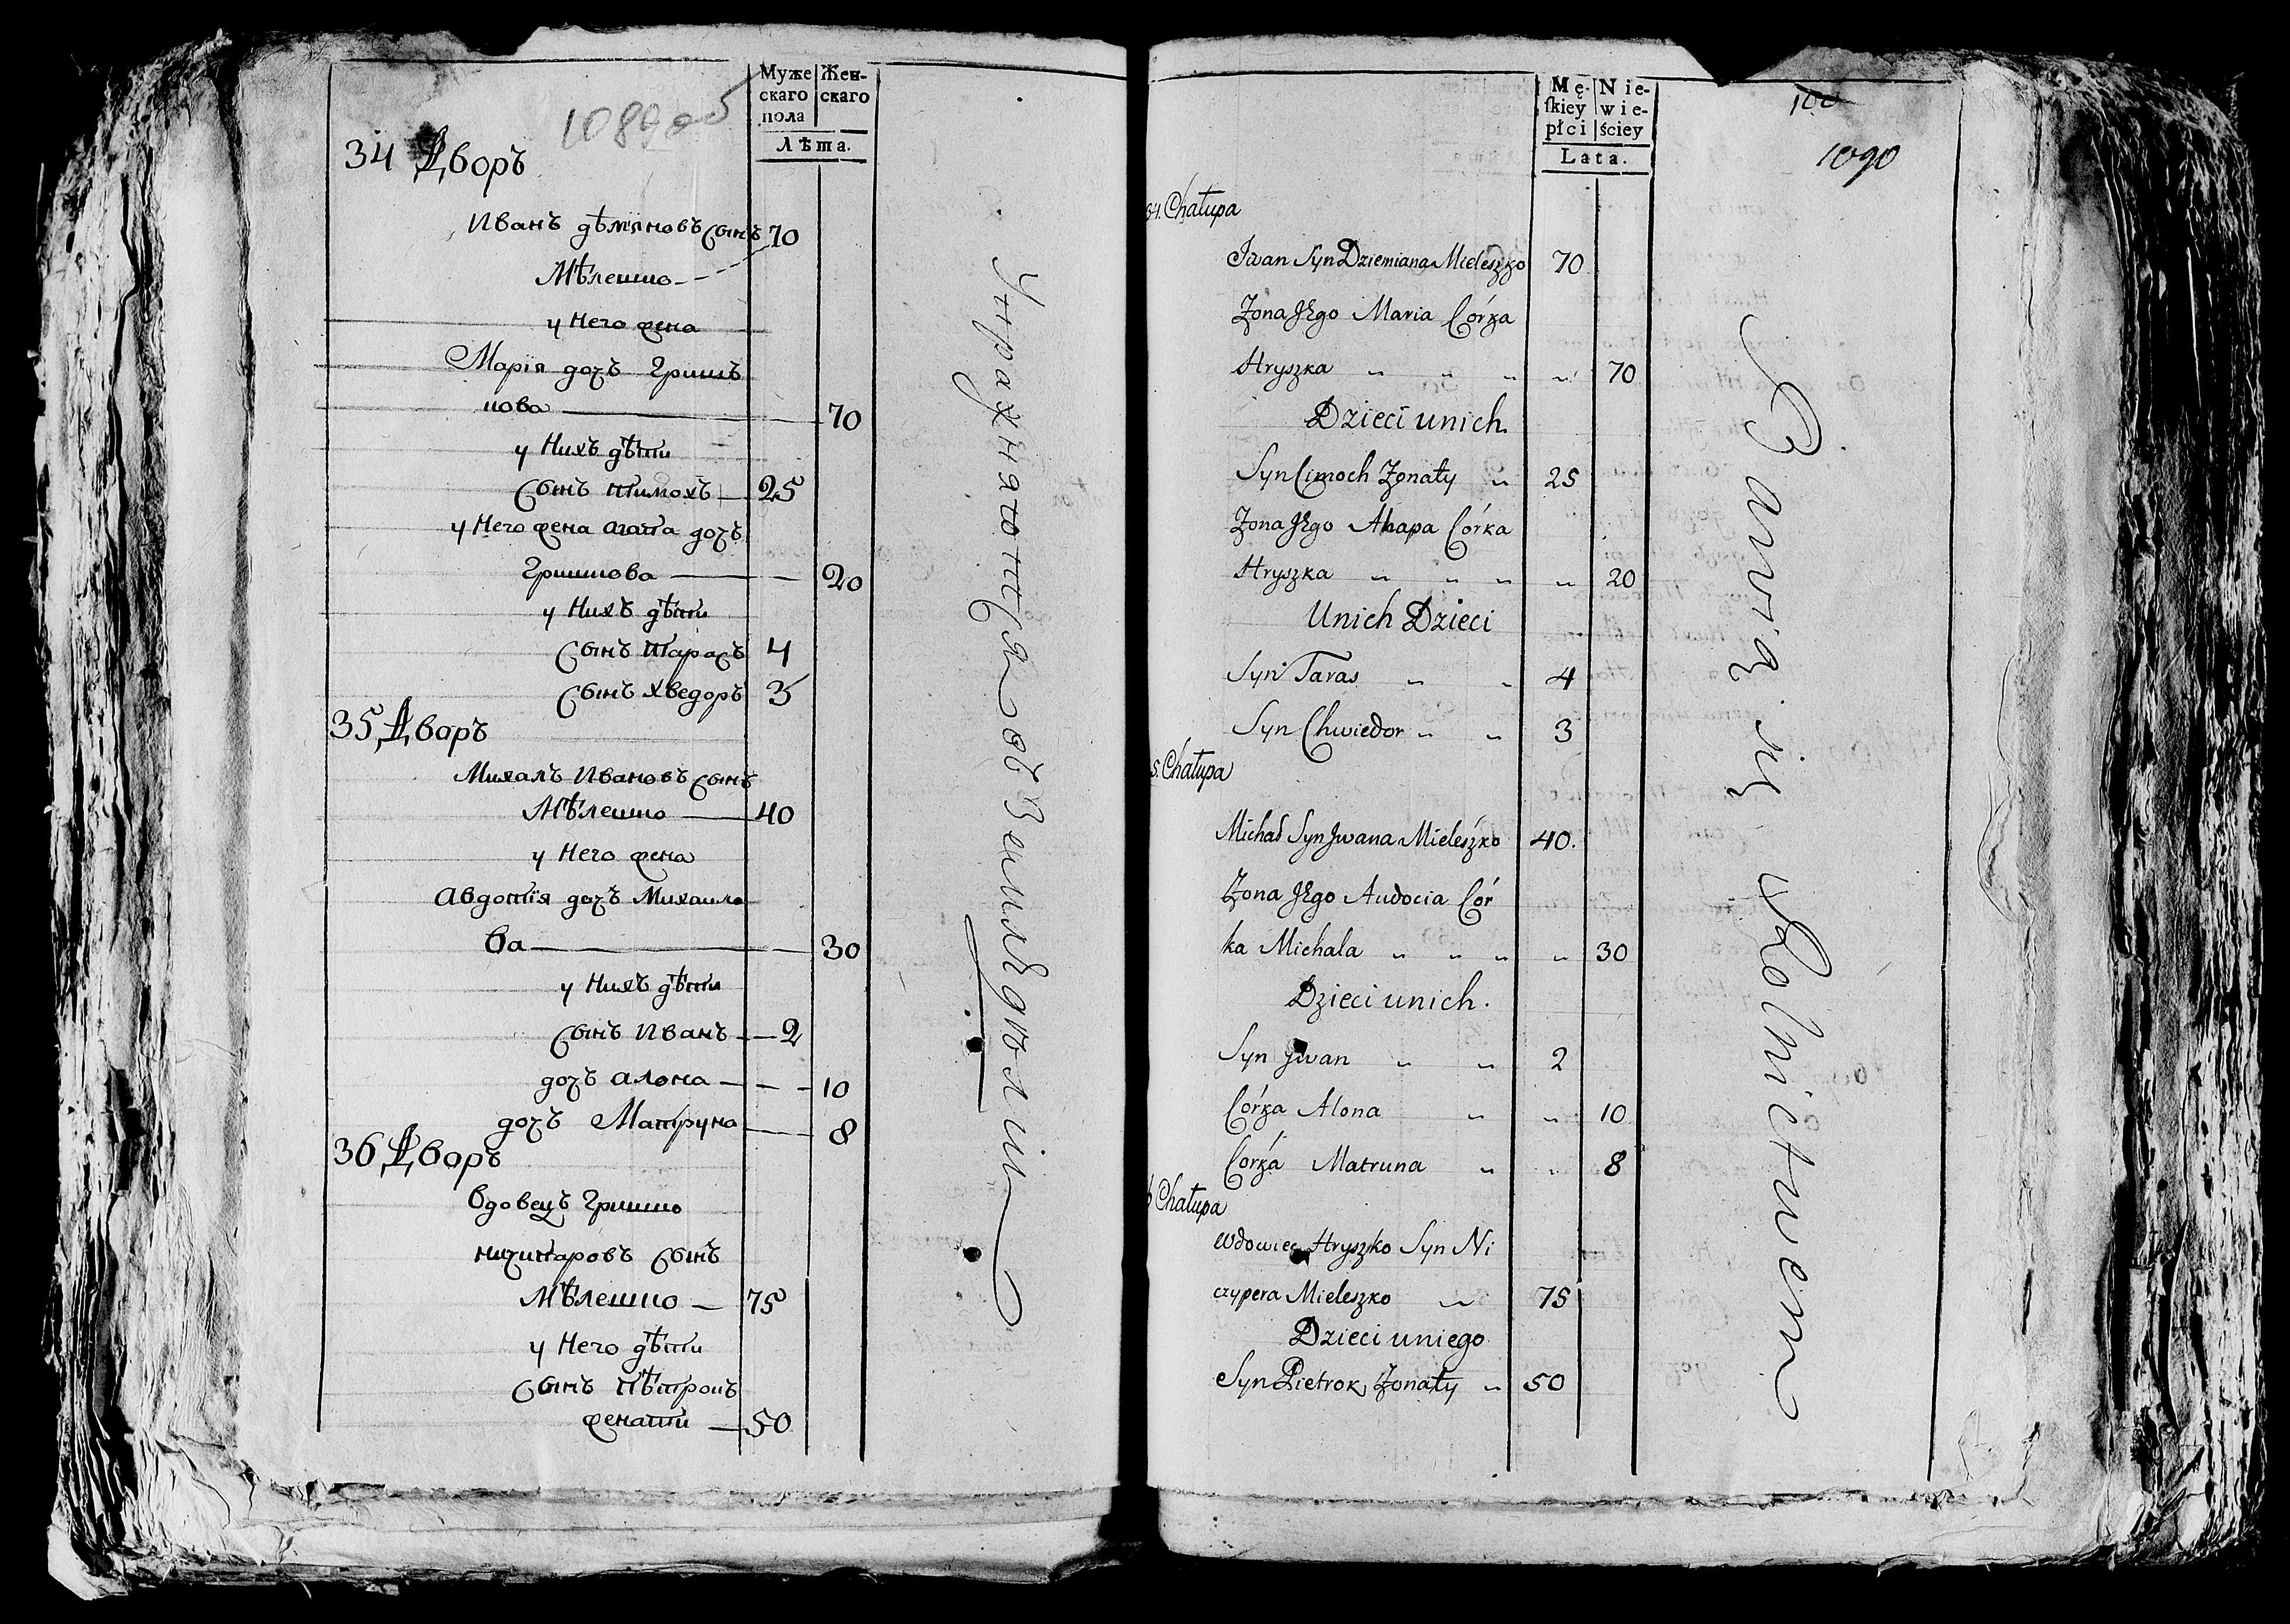 Муже
скаго
пола
Жен-
скаго
Лѣта.
1089об
34 Дворъ
Иванъ дѣмяновъ сынъ 70
Мѣлешко
у Него жена
Марія дочъ Гришъ
кова 70
у Нихъ дѣти
Сынъ тимохъ 25
у Него жена агапа дочъ
Гришкова 20
у Нихъ дѣти
Сынъ тарасъ 4
Сынъ хведоръ 3
35 Дворъ
Михалъ Ивановъ сынъ
Мѣлешко 40
у Него жена
Авдотія дочъ Михаило
ва 30
у Нихъ дѣти
Сынъ Иванъ 2
дочъ алона 10
дочъ Матруна 8
36 Дворъ
Вдовецъ Гришко
ничипаровъ Сынъ
Мѣлешко 75
у Него дѣти
Сынъ пѣтрокъ
женати 50
земледѣліи
Mę-
ſkiey
płci
Nie-
wie-
ściey
Lata.
100
1090
34. Chałupa
Iwan Syn Dziemiana Mieleszko 70
Zona JEgo Maria Córka
Hryszka „ „ „ „ 70
Dzieci unich.
Syn Cimoch Zonaty „ 25
Zona JEgo Ahapa Córka
Hryszka „ „ „ „ 20
Unich Dzieci
Syn Taras „ „ 4
Syn Chwiedor „ „ 3
5. Chałupa
Michał Syn Jwana Mieleszko 40.
Zona JEgo Audocia Cór
ka Michala „ „ „ „ 30
Dzieci unich.
Syn Jwan „ „ 2
Córka Alona „ „ 10
Córka Matruna „ „ 8
6 Chałupa
Wdowiec Hryszko Syn Ni
czypera Mieleszko „ 75
Dzieci uniego
Syn Pietrok Zonaty „ 50
Bawią się Rolnictwem